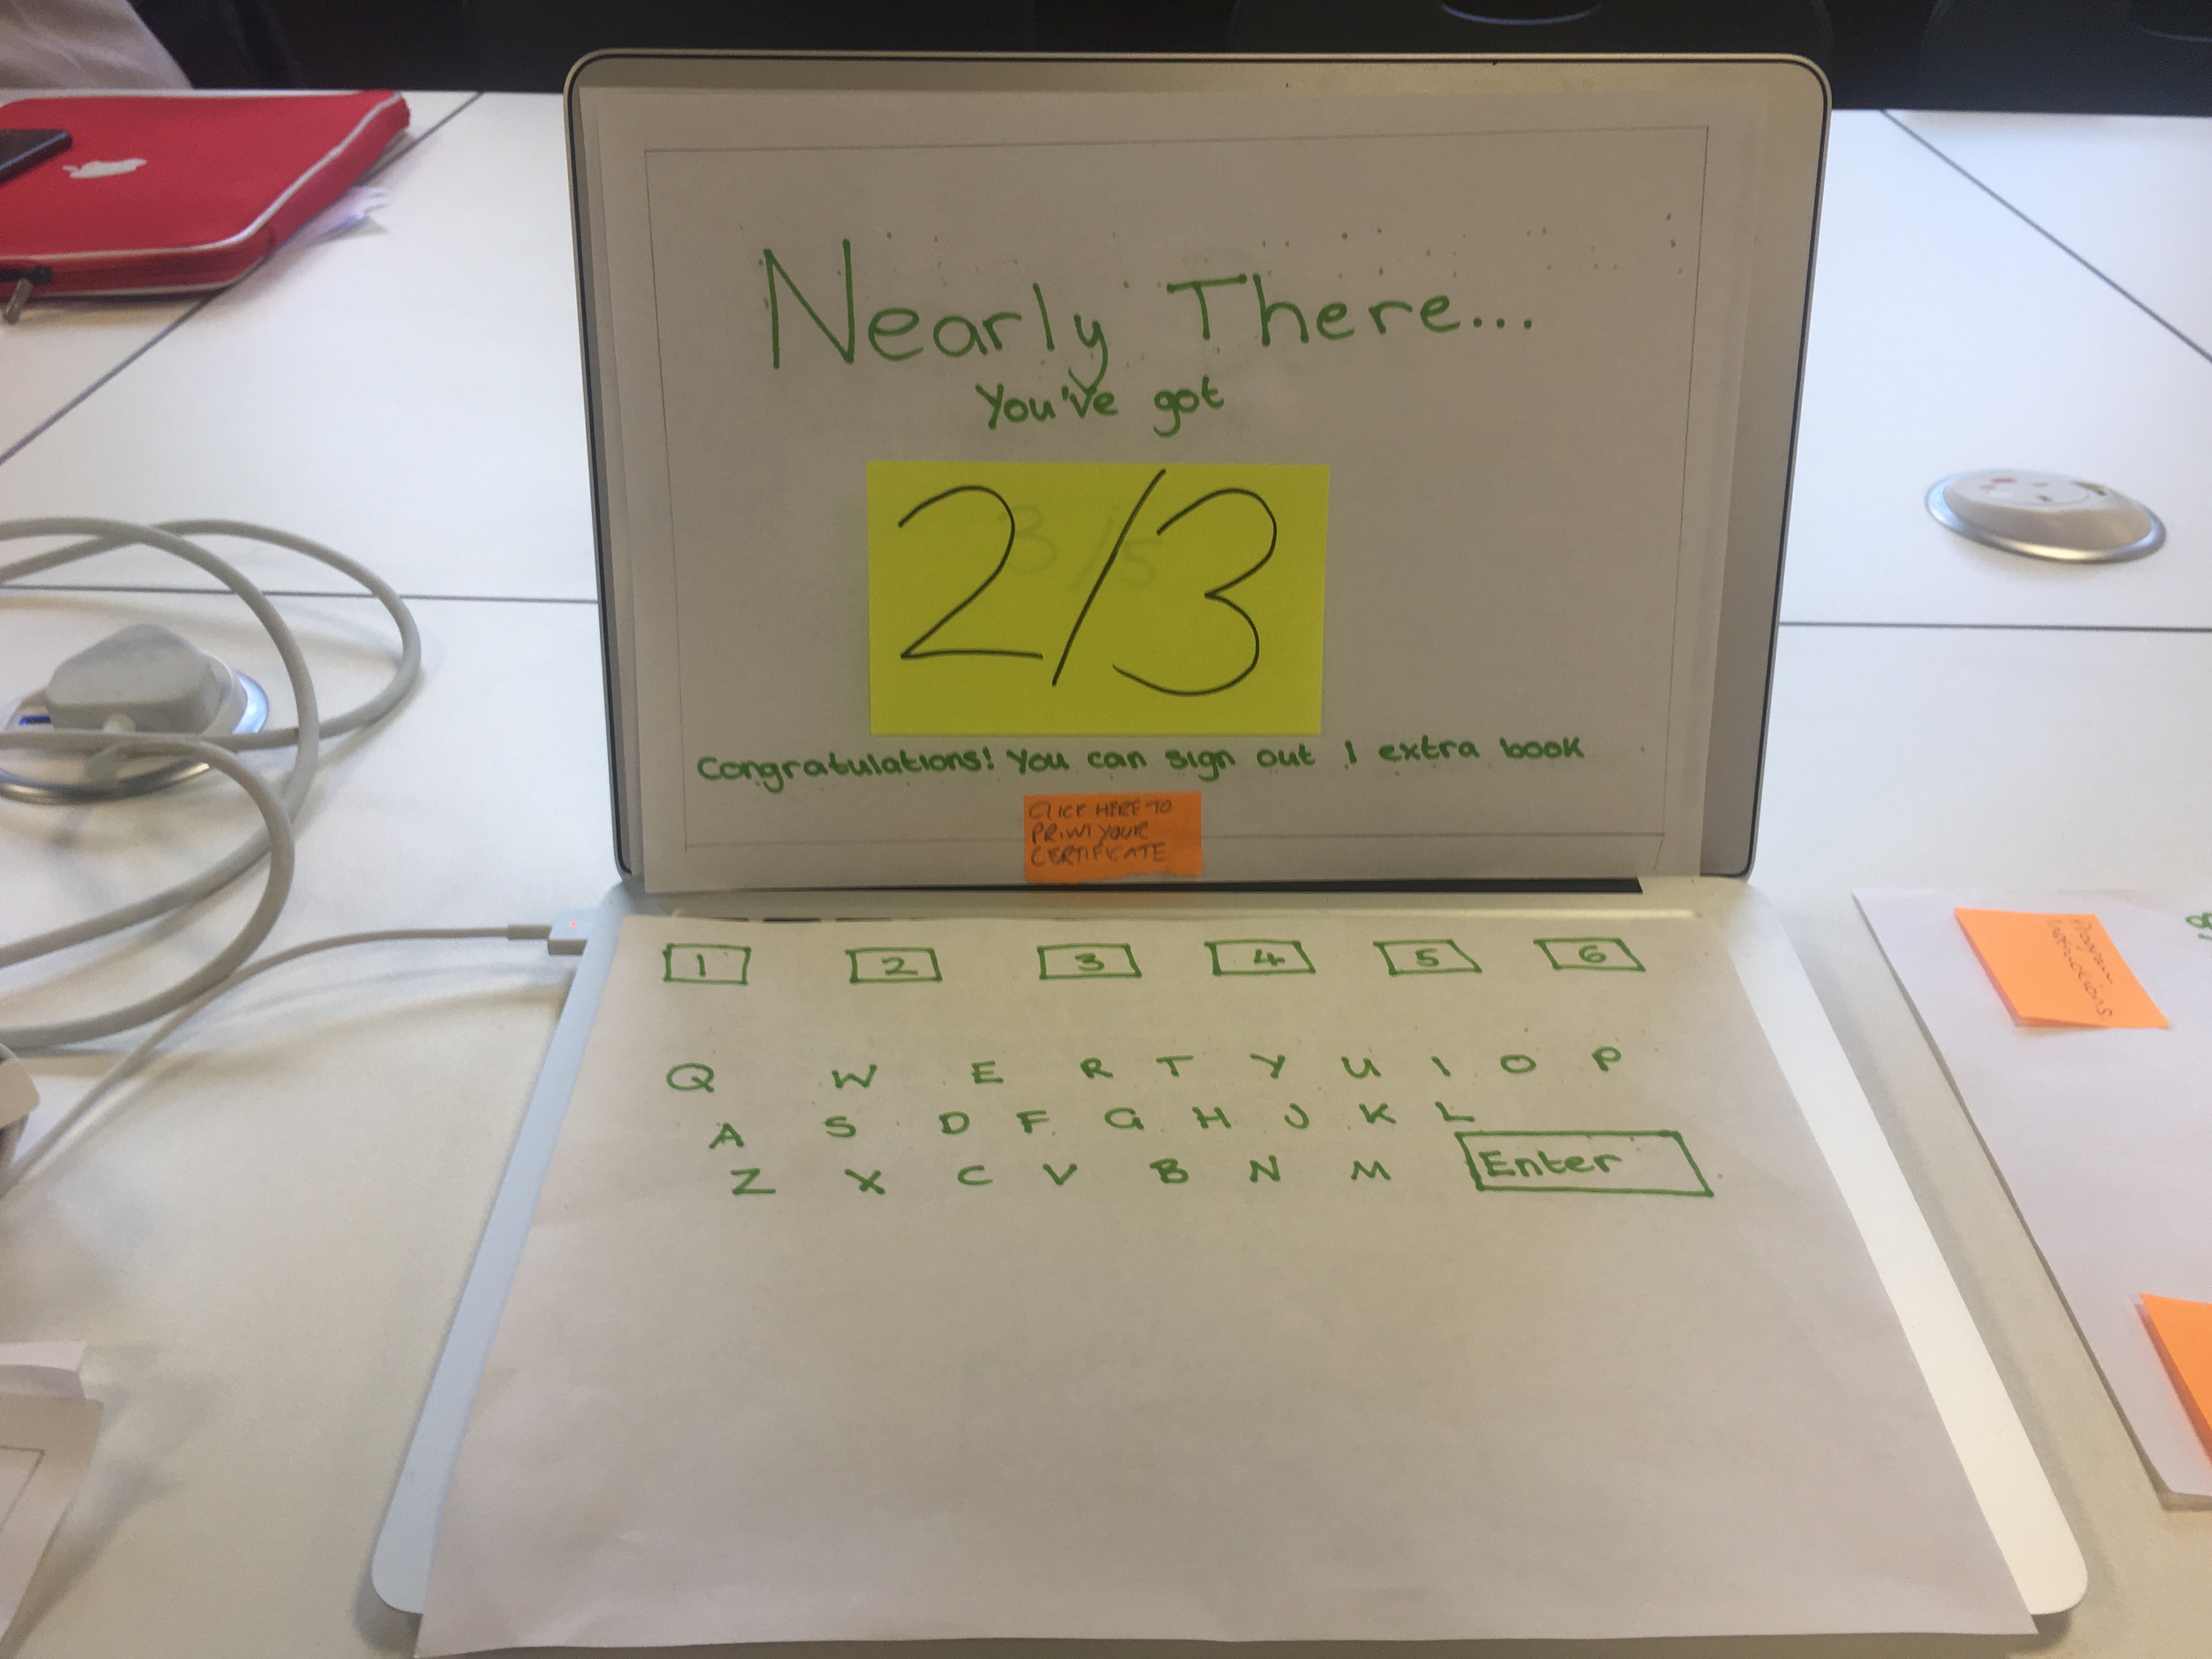 Nearly There...
You've got
2/3
3/5
Congratulations! You can sign out 1 extra book
CLICK HERE TO
PRINT YOUR
CERTIFICATE
1 2 3 4 5 6
Q W E R T Y U I O P
A S D F G H J K L
Z X C V B N M Enter